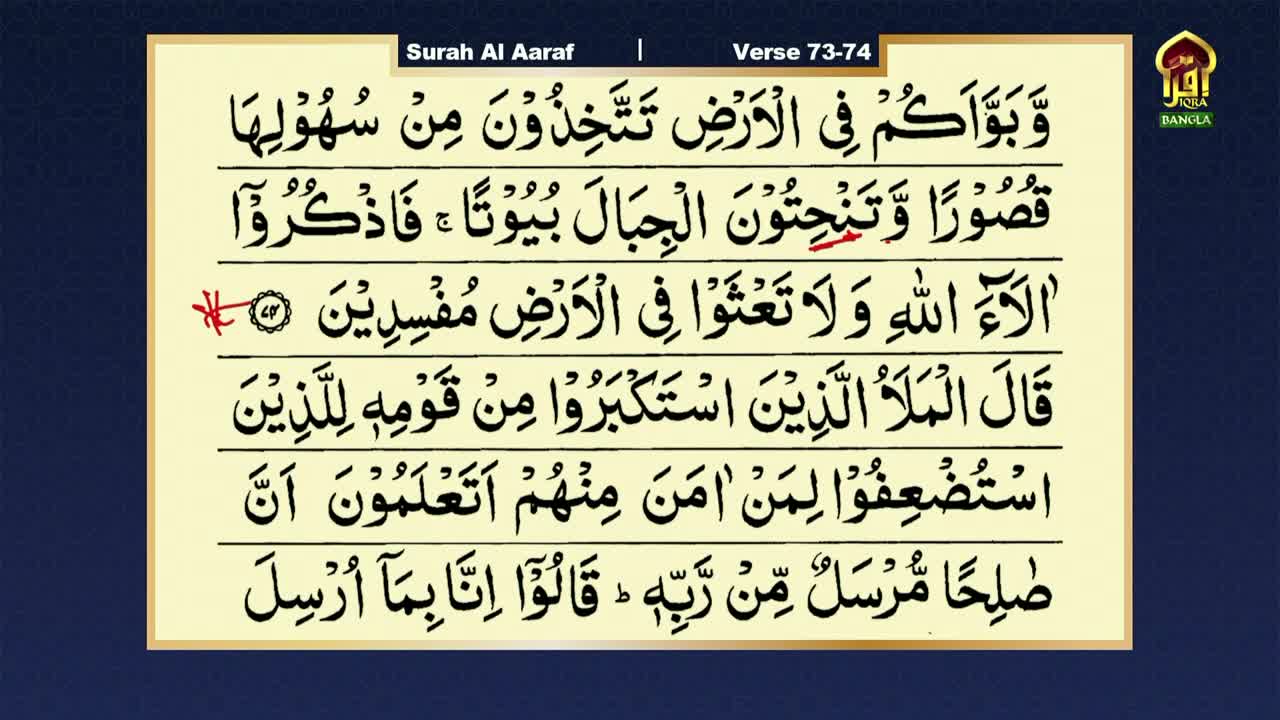 Surah Al Aaraf | Verse 73-74
اقرأ
IQRA
BANGLA
وَّبَوَّاَكُمْ فِى الْاَرْضِ تَتَّخِذُوْنَ مِنْ سُهُوْلِهَا
قُصُوْرًا وَّتَنْحِتُوْنَ الْجِبَالَ بُيُوْتًا ۚ فَاذْكُرُوْۤا
اٰلَآءَ اللّٰهِ وَلَا تَعْثَوْا فِى الْاَرْضِ مُفْسِدِيْنَ ﴿۷۴﴾
قَالَ الْمَلَاُ الَّذِيْنَ اسْتَكْبَرُوْا مِنْ قَوْمِهٖ لِلَّذِيْنَ
اسْتُضْعِفُوْا لِمَنْ اٰمَنَ مِنْهُمْ اَتَعْلَمُوْنَ اَنَّ
صٰلِحًا مُّرْسَلٌ مِّنْ رَّبِّهٖ ؕ قَالُوْۤا اِنَّا بِمَاۤ اُرْسِلَ